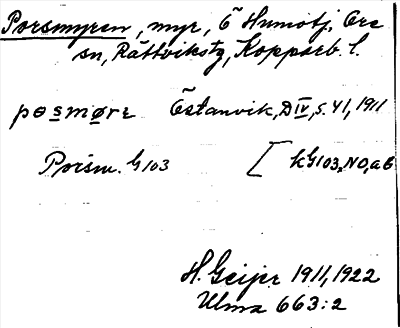 Porsmyren, myr, Ö Humotj, Ore
sn, Rättvikstg, Kopparb. l.
pɵsmørɛ Östanvik, D IV, s. 41, 1911
Porsm. G103 [ KG103, NO, a6
H. Geijer 1911, 1922
Ulma 663:2